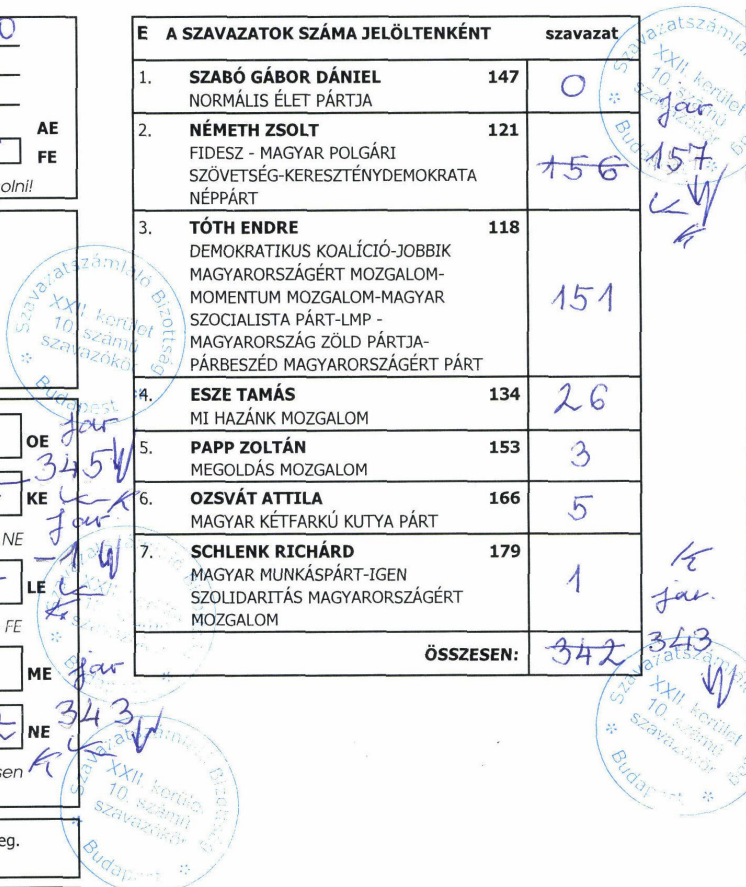 0
AE
FE
olni!
E A SZAVAZATOK SZÁMA JELÖLTENKÉNT szavazat
1. SZABÓ GÁBOR DÁNIEL 147 0
NORMÁLIS ÉLET PÁRTJA
jav
2. NÉMETH ZSOLT 121
FIDESZ - MAGYAR POLGÁRI
SZÖVETSÉG-KERESZTÉNYDEMOKRATA 156 157
NÉPPÁRT
3. TÓTH ENDRE 118
DEMOKRATIKUS KOALÍCIÓ-JOBBIK
MAGYARORSZÁGÉRT MOZGALOM-
MOMENTUM MOZGALOM-MAGYAR 151
SZOCIALISTA PÁRT-LMP -
MAGYARORSZÁG ZÖLD PÁRTJA-
PÁRBESZÉD MAGYARORSZÁGÉRT PÁRT
4. ESZE TAMÁS 134 26
MI HAZÁNK MOZGALOM
5. PAPP ZOLTÁN 153 3
MEGOLDÁS MOZGALOM
6. OZSVÁT ATTILA 166 5
MAGYAR KÉTFARKÚ KUTYA PÁRT
7. SCHLENK RICHÁRD 179
MAGYAR MUNKÁSPÁRT-IGEN 1
SZOLIDARITÁS MAGYARORSZÁGÉRT jav.
MOZGALOM
ÖSSZESEN: 342 343
OE jav
345
KE
jav
NE
-1
LE
FE
ME jav
NE 343
sen
eg.
Szavazatszámláló Bizottság
XXII. kerület
10. számú
szavazókör
Budapest
Szavazatszámláló
XXII. kerület
10. számú
szavazókör
Budapest
XXII. kerület
10. számú
szavazókör
Budapest
Szavazatszámláló Bizottság
XXII. kerület
10. számú
szavazókör
Budapest